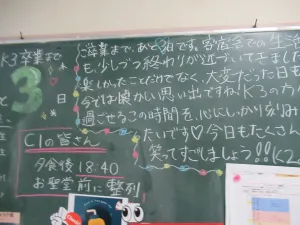 K3卒業まで
3
日
ご卒業まで、あと3日です。寄宿舎での生活
も、少しづつ終わりが近づいてきました
楽しかったことだけでなく、大変だった日も
今では懐かしい思い出ですね! K3の方々
過ごせるこの時間を、心にしっかり刻み
たいです♡今日もたくさん
笑ってすごしましょう!! K2
C1の皆さん
夕食後 18:40
お聖堂前に整列